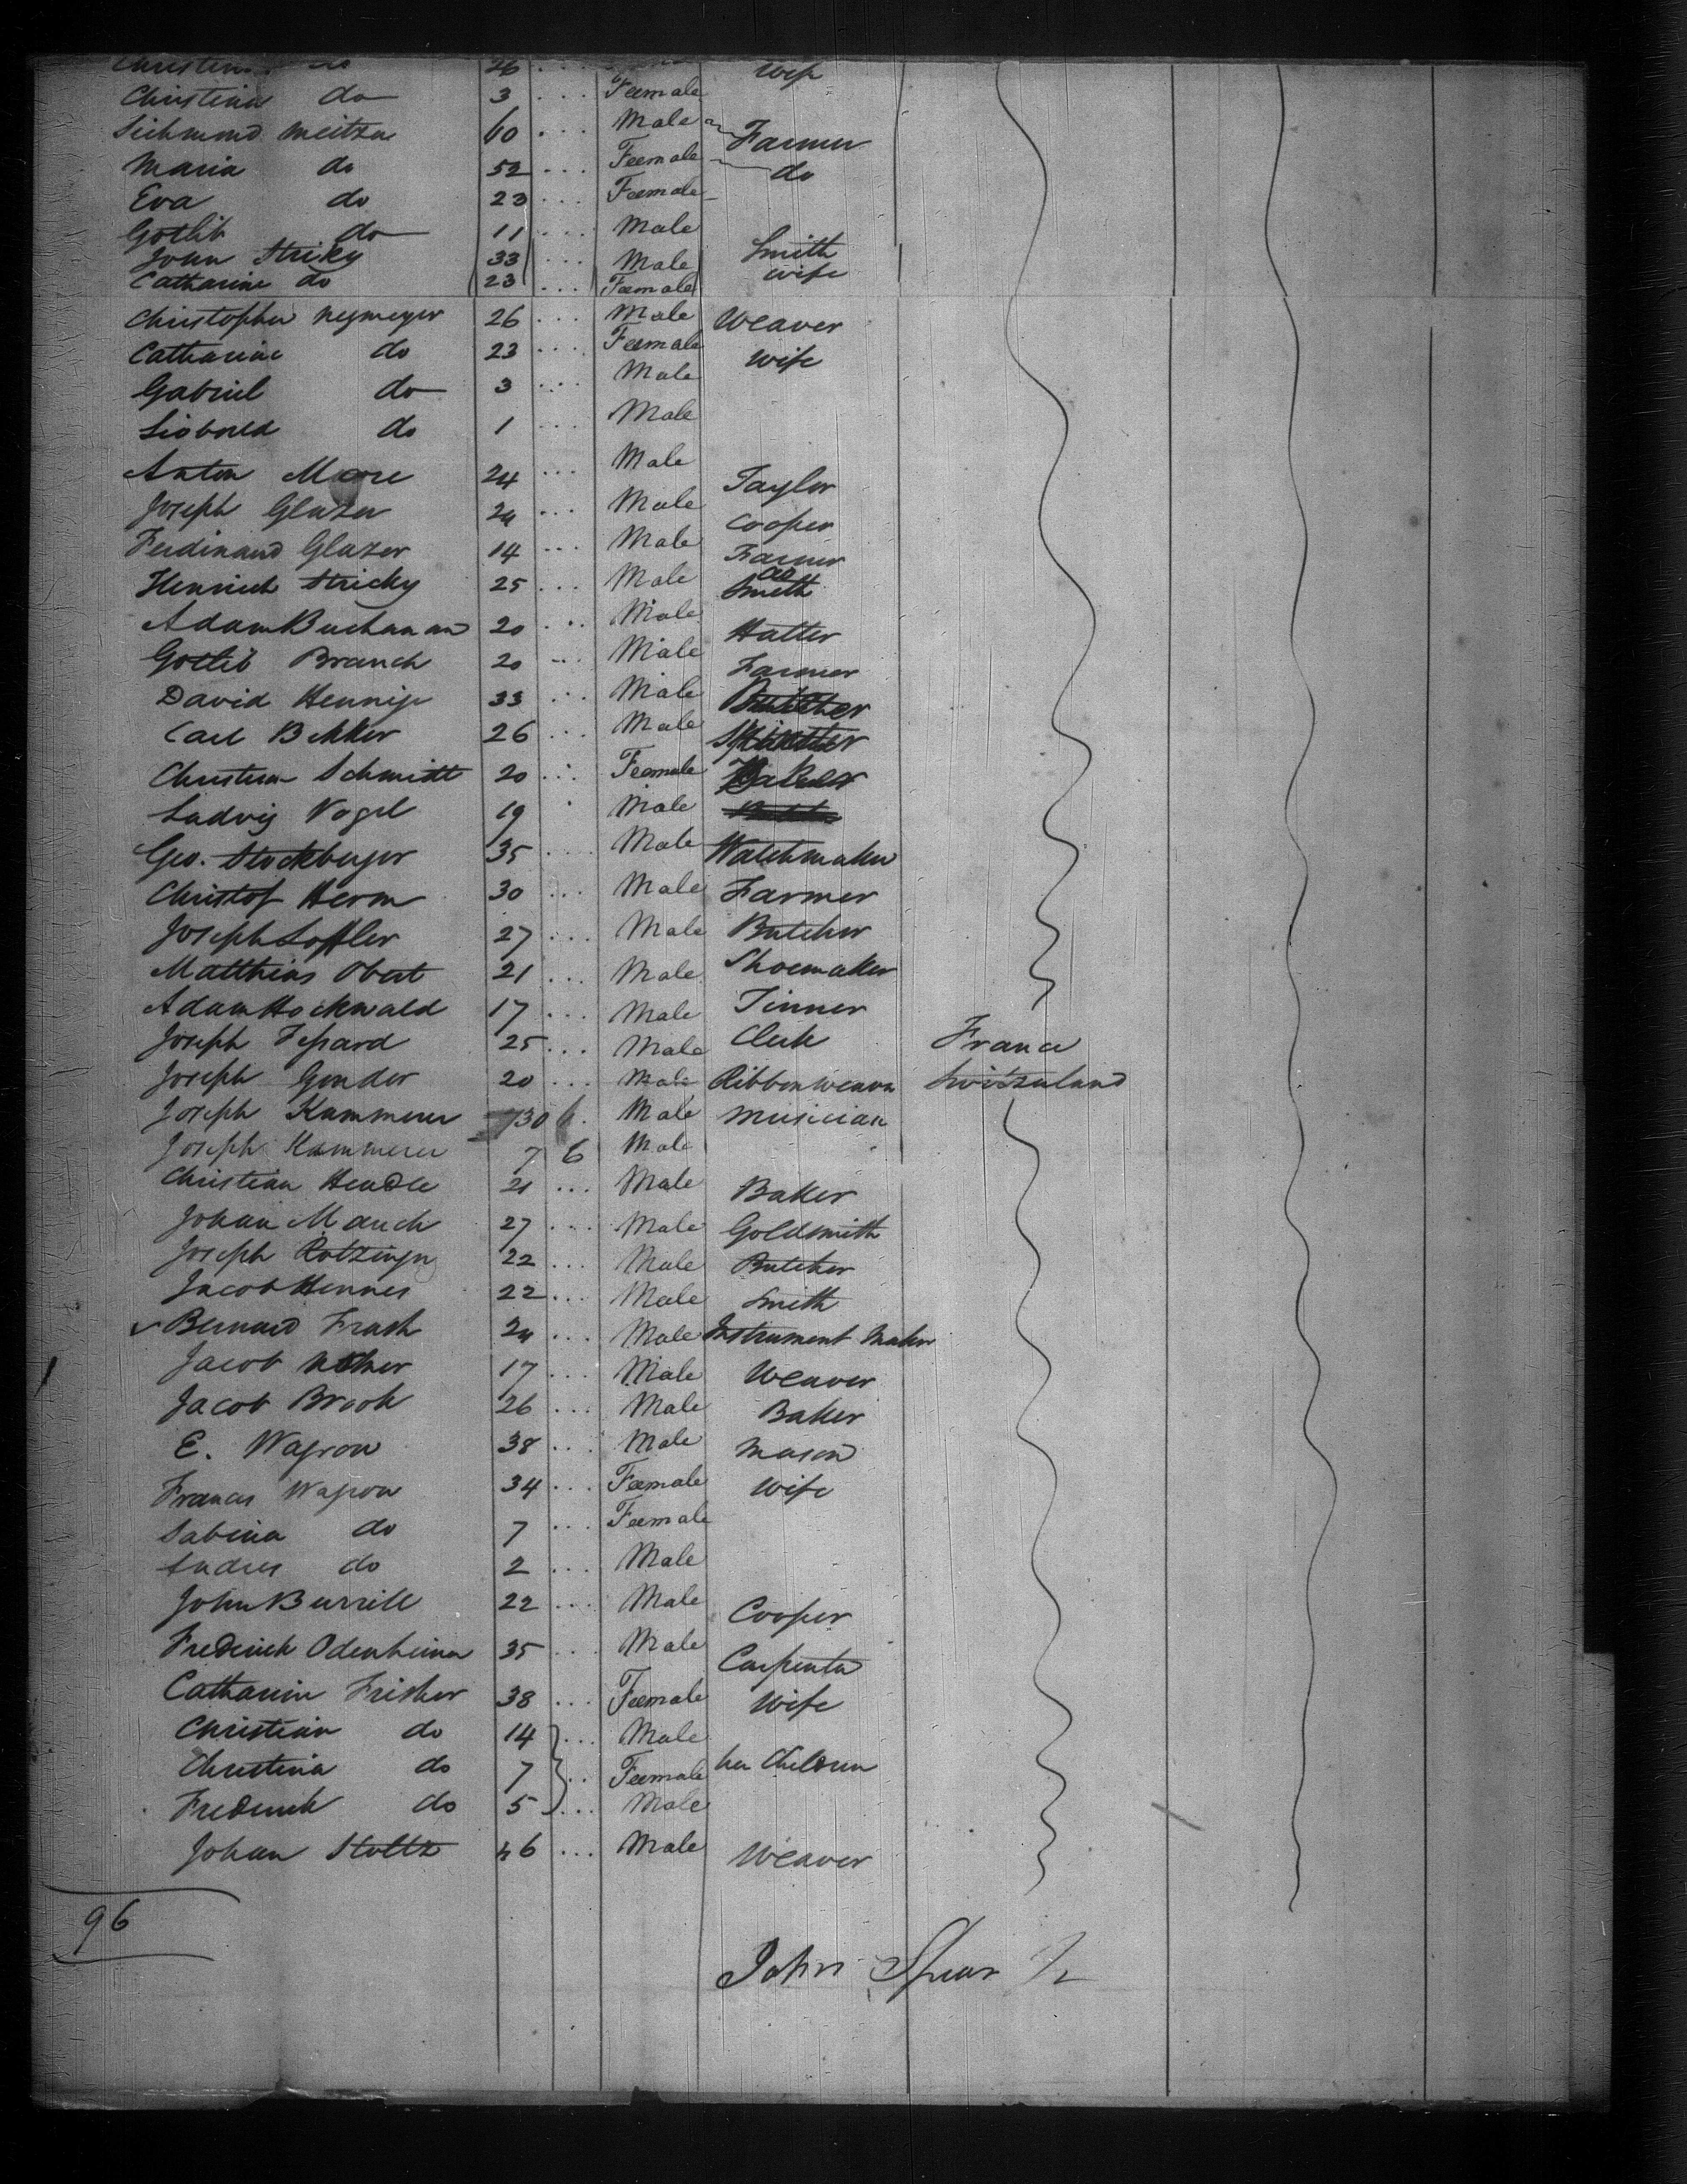 Christin. do 26 ... wife
Christina do 3 ... Feemale
Sichmund Meitzu 60 ... Male Farmer
Maria do 52 ... Feemale do
Eva do 23 ... Feemale
Gotlib do 11 ... Male
John Stricky 33 ... Male Smith
Catharine do 23 ... Feemale wife
Christopher Neymeyer 26 ... Male Weaver
Catharine do 23 ... Feemale wife
Gabriel do 3 ... Male
Liobold do 1 ... Male
Anton More 24 ... Male Taylor
Joseph Glazer 24 ... Male Cooper
Ferdinand Glazer 14 ... Male Farmer
Henrich Stricky 25 ... Male Smith
Adam Buchanan 20 ... Male Hatter
Gotlib Branch 20 ... Male Farmer
David Hennige 33 ... Male Butcher
Carl Bekker 26 ... Male
Christian Schmidt 20 ... Feemale Baker
Ludvig Vogel 19 Male
Geo. Stockberger 35 ... Male Watchmaker
Christof Herm 30 ... Male Farmer
Joseph Loffler 27 ... Male Butcher
Matthias Obert 21 ... Male Shoemaker
Adam Hockwald 17 ... Male Tinner
Joseph 25 ... Male Clerk France
Joseph Gender 20 ... Male Ribbonweaver Switzerland
Joseph Kammerer 30 Male Musician
Joseph Kammerer 7 6 Male
Christian Hendle 21 ... Male Baker
Johan Mauch 27 ... Male Goldsmith
Joseph Rotzinger 22 ... Male Butcher
Jacob Hennes 22 ... Male Smith
Bernard Frash 24 ... Male Instrument Maker
Jacob 17 ... Male Weaver
Jacob Brook 26 ... Male Baker
E. Wapron 38 ... Male Mason
Frances Wapron 34 ... Feemale Wife
Sabina do 7 ... Feemale
Andres do 2 ... Male
John Burrill 22 ... Male Cooper
Frederick Odenheimer 35 ... Male Carpenter
Catharine Frisher 38 ... Feemale Wife
Christian do 14 ... Male
Christina do 7 ... Feemale her Children
Frederick do 5 ... Male
Johan Stoltz 46 ... Male Weaver
96
John Spear Jr